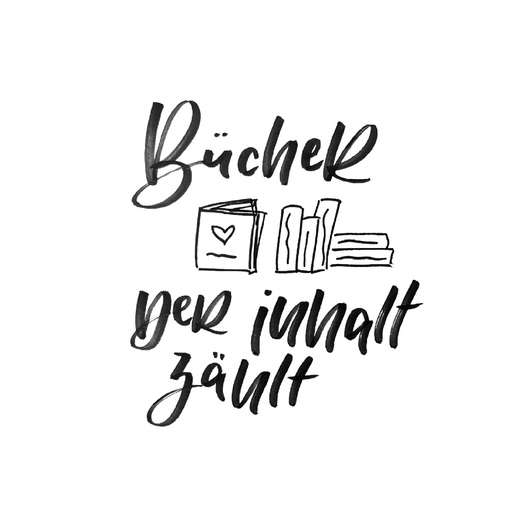 BücheR
DeR inhalt
zählt